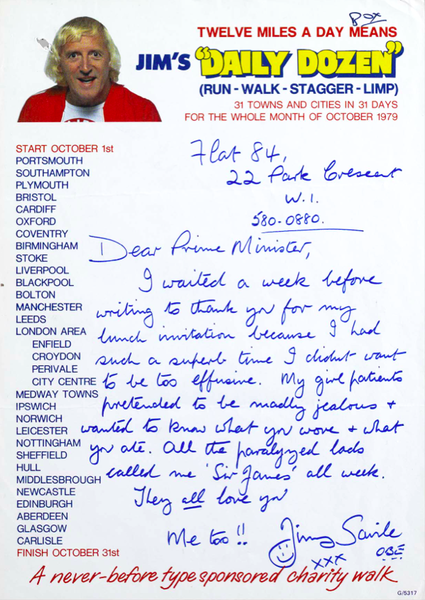 80x
TWELVE MILES A DAY MEANS
JIM'S "DAILY DOZEN"
(RUN - WALK - STAGGER - LIMP)
31 TOWNS AND CITIES IN 31 DAYS
FOR THE WHOLE MONTH OF OCTOBER 1979
START OCTOBER 1st
PORTSMOUTH
SOUTHAMPTON
PLYMOUTH
BRISTOL
CARDIFF
OXFORD
COVENTRY
BIRMINGHAM
STOKE
LIVERPOOL
BLACKPOOL
BOLTON
MANCHESTER
LEEDS
LONDON AREA
ENFIELD
CROYDON
PERIVALE
CITY CENTRE
MEDWAY TOWNS
IPSWICH
NORWICH
LEICESTER
NOTTINGHAM
SHEFFIELD
HULL
MIDDLESBROUGH
NEWCASTLE
EDINBURGH
ABERDEEN
GLASGOW
CARLISLE
FINISH OCTOBER 31st
Flat 84,
22 Park Crescent
W.1.
580-0880.
Dear Prime Minister,
I waited a week before
writing to thank you for my
lunch invitation because I had
such a superb time I didnt want
to be too effusive. My girl patients
pretended to be madly jealous +
wanted to know what you wore + what
you ate. All the paralyzed lads
called me 'Sir James' all week.
They all love you
Me too!! Jimmy Savile
OBE
xxx
A never-before type sponsored charity walk
G/5317